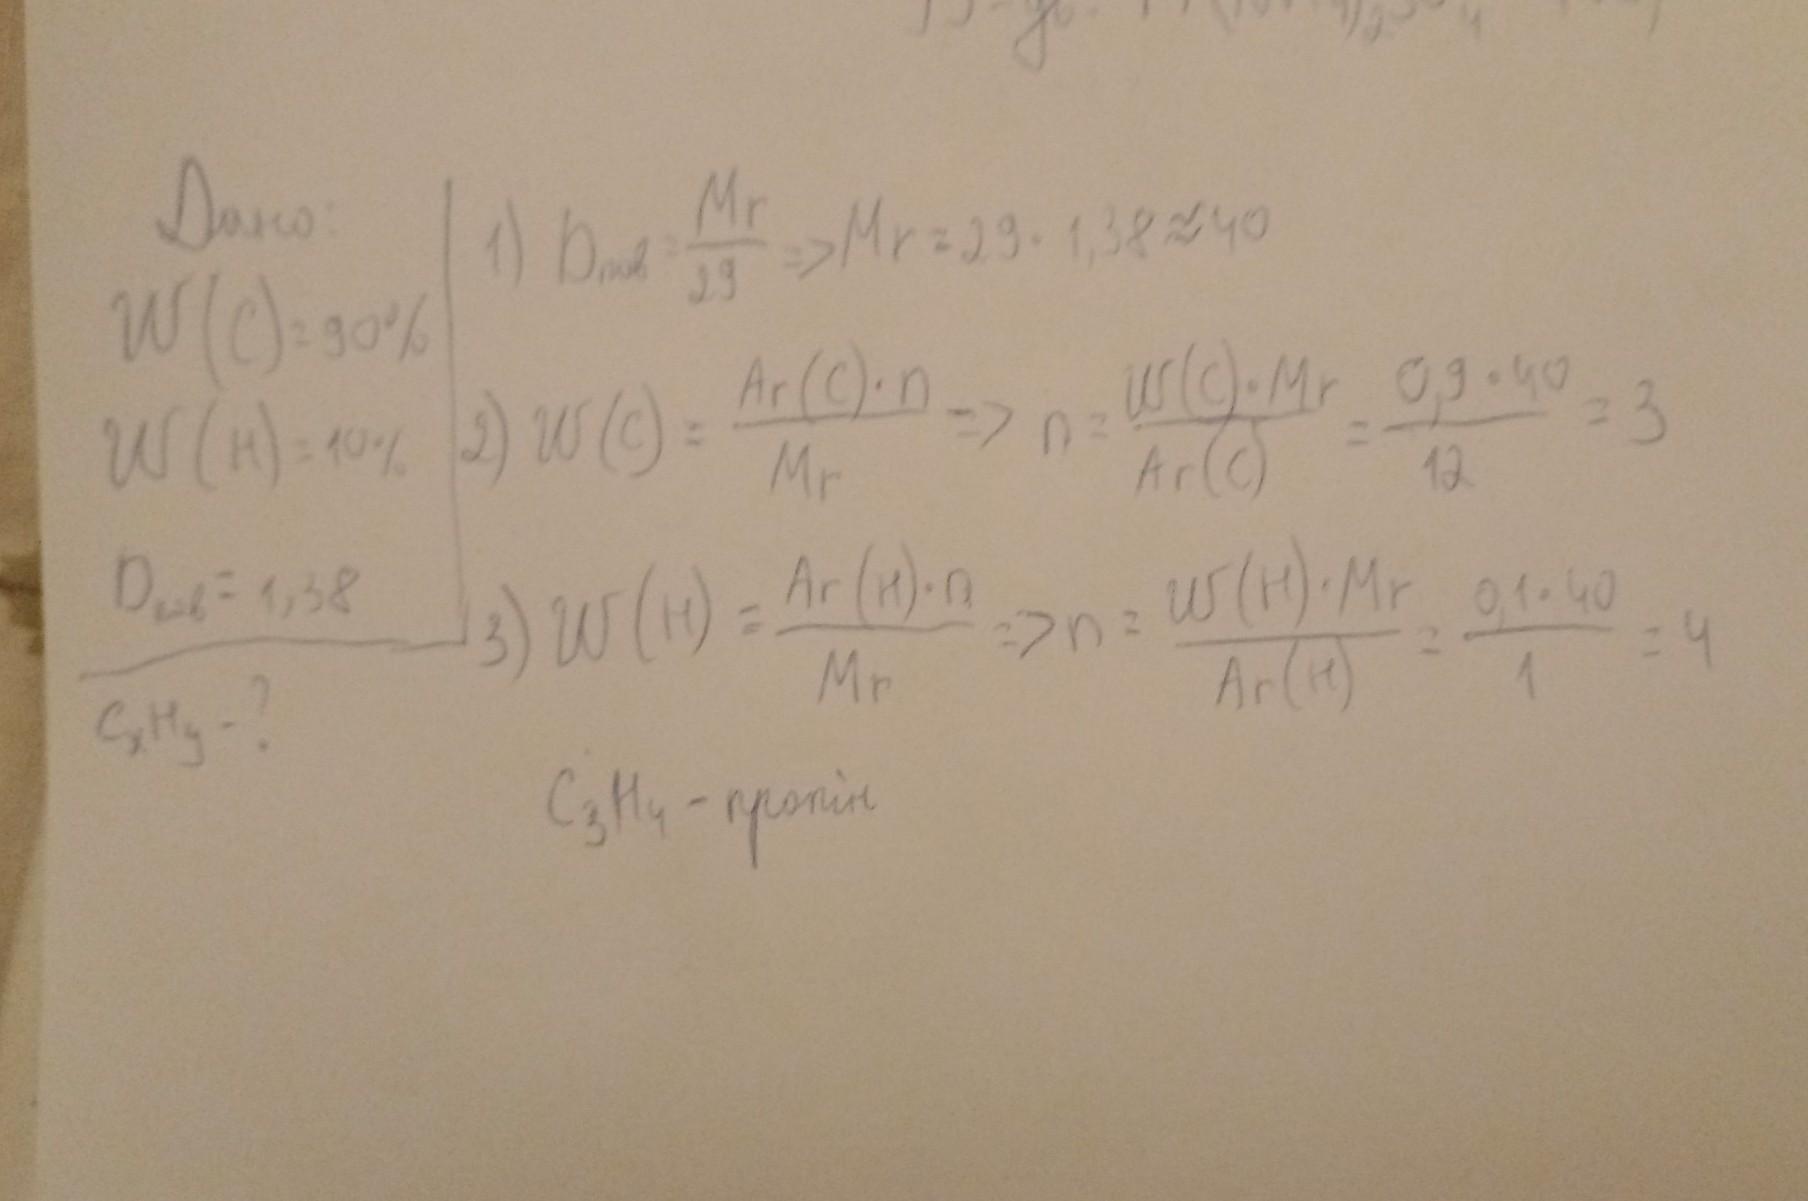 Дано:
W(C)=90%
W(H)=10%
Dпов=1,38
CxHy-?
1) Dпов=Mr/29 => Mr=29·1,38≈40
2) W(C)=Ar(C)·n/Mr => n=W(C)·Mr/Ar(C)=0,9·40/12=3
3) W(H)=Ar(H)·n/Mr => n=W(H)·Mr/Ar(H)=0,1·40/1=4
C₃H₄-пропін